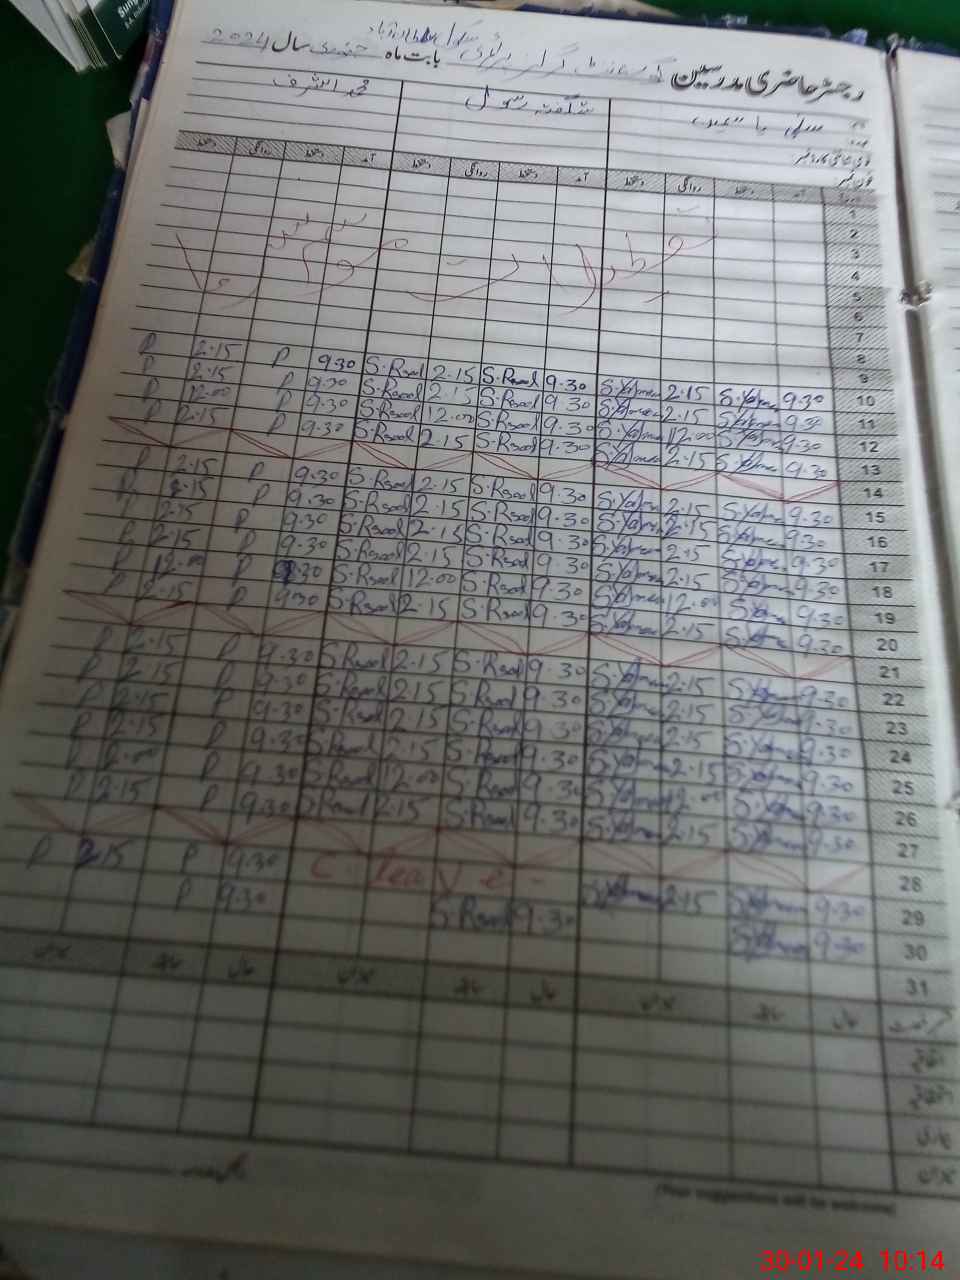 رجسٹر حاضری مدرسین گورنمنٹ گرلز پرائمری سکول سلطان آباد بابت ماہ جنوری سال 2024
نام سلمیٰ یاسمین شگفتہ رسول محمد اشرف
عہدہ
قومی شناختی کارڈ نمبر
فون نمبر
تاریخ آمد دستخط روانگی دستخط آمد دستخط روانگی دستخط آمد دستخط روانگی دستخط
1
2
3
تعطیلات موسم سرما
4
5
6
7
8
9
10 9.30 S.Yasmeen 2.15 S.Yasmeen 9.30 S.Rsool 2.15 S.Rsool 9.30 P 2.15 P
11 9.30 S.Yasmeen 2.15 S.Yasmeen 9.30 S.Rsool 2.15 S.Rsool 9.30 P 2.15 P
12 9.30 S.Yasmeen 12.00 S.Yasmeen 9.30 S.Rsool 12.00 S.Rsool 9.30 P 12.00 P
13 9.30 S.Yasmeen 2.15 S.Yasmeen 9.30 S.Rsool 2.15 S.Rsool 9.30 P 2.15 P
14
15 9.30 S.Yasmeen 2.15 S.Yasmeen 9.30 S.Rsool 2.15 S.Rsool 9.30 P 2.15 P
16 9.30 S.Yasmeen 2.15 S.Yasmeen 9.30 S.Rsool 2.15 S.Rsool 9.30 P 2.15 P
17 9.30 S.Yasmeen 2.15 S.Yasmeen 9.30 S.Rsool 2.15 S.Rsool 9.30 P 2.15 P
18 9.30 S.Yasmeen 2.15 S.Yasmeen 9.30 S.Rsool 2.15 S.Rsool 9.30 P 2.15 P
19 9.30 S.Yasmeen 12.00 S.Yasmeen 9.30 S.Rsool 12.00 S.Rsool 9.30 P 12.00 P
20 9.30 S.Yasmeen 2.15 S.Yasmeen 9.30 S.Rsool 2.15 S.Rsool 9.30 P 2.15 P
21
22 9.30 S.Yasmeen 2.15 S.Yasmeen 9.30 S.Rsool 2.15 S.Rsool 9.30 P 2.15 P
23 9.30 S.Yasmeen 2.15 S.Yasmeen 9.30 S.Rsool 2.15 S.Rsool 9.30 P 2.15 P
24 9.30 S.Yasmeen 2.15 S.Yasmeen 9.30 S.Rsool 2.15 S.Rsool 9.30 P 2.15 P
25 9.30 S.Yasmeen 2.15 S.Yasmeen 9.30 S.Rsool 2.15 S.Rsool 9.30 P 2.15 P
26 9.30 S.Yasmeen 12.00 S.Yasmeen 9.30 S.Rsool 12.00 S.Rsool 9.30 P 12.00 P
27 9.30 S.Yasmeen 2.15 S.Yasmeen 9.30 S.Rsool 2.15 S.Rsool 9.30 P 2.15 P
28
29 9.30 S.Yasmeen 2.15 S.Yasmeen C. Leave 9.30 P 2.15 P
30 9.30 S.Yasmeen 9.30 S.Rsool 9.30 P
31
(Your suggestions will be welcome)
30-01-24 10:14